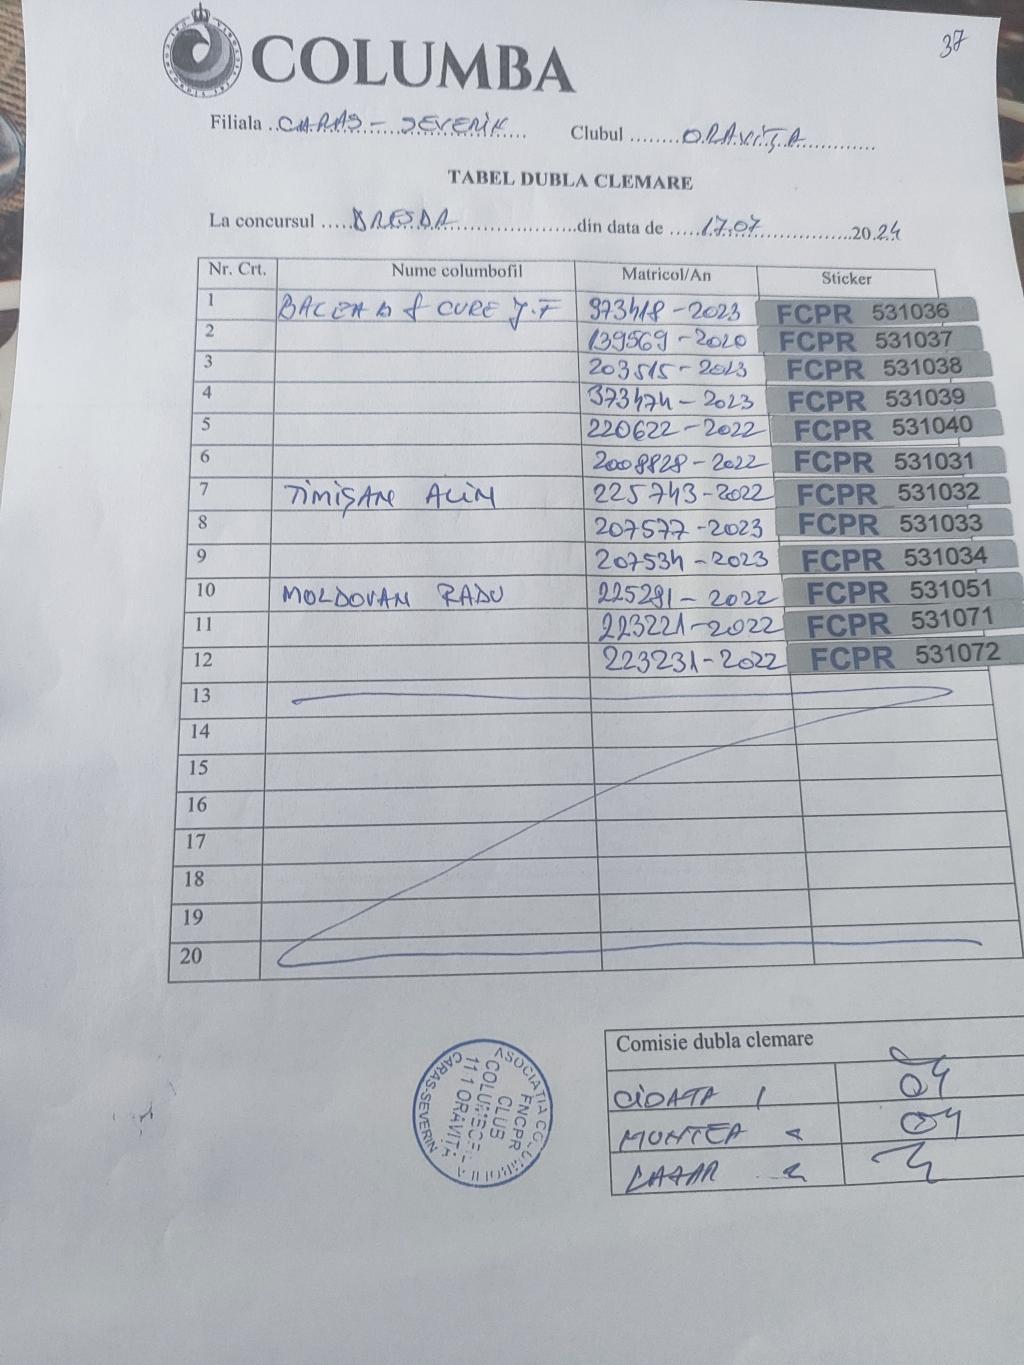 37
COLUMBA
Filiala ..CARAS - SEVERIN.... Clubul ........ORAVIȚA............
TABEL DUBLA CLEMARE
La concursul .....DRESDA........................din data de .....17.07................2024
Nr. Crt. Nume columbofil Matricol/An Sticker
1 & CURE J.F 973418-2023 FCPR 531036
2 139569-2020 FCPR 531037
3 203515-2023 FCPR 531038
4 373474-2023 FCPR 531039
5 220622-2022 FCPR 531040
6 2008828-2022 FCPR 531031
7 TIMIȘAN ALIN 225743-2022 FCPR 531032
8 207577-2023 FCPR 531033
9 207534-2023 FCPR 531034
10 MOLDOVAN RADU 225291-2022 FCPR 531051
11 223221-2022 FCPR 531071
12 223231-2022 FCPR 531072
13
14
15
16
17
18
19
20
ASOCIATIA
FNCPR
CLUB
111 ORAVITA
CARAS-SEVERIN
Comisie dubla clemare
CIOATA I
MUNTEA
LAZAR